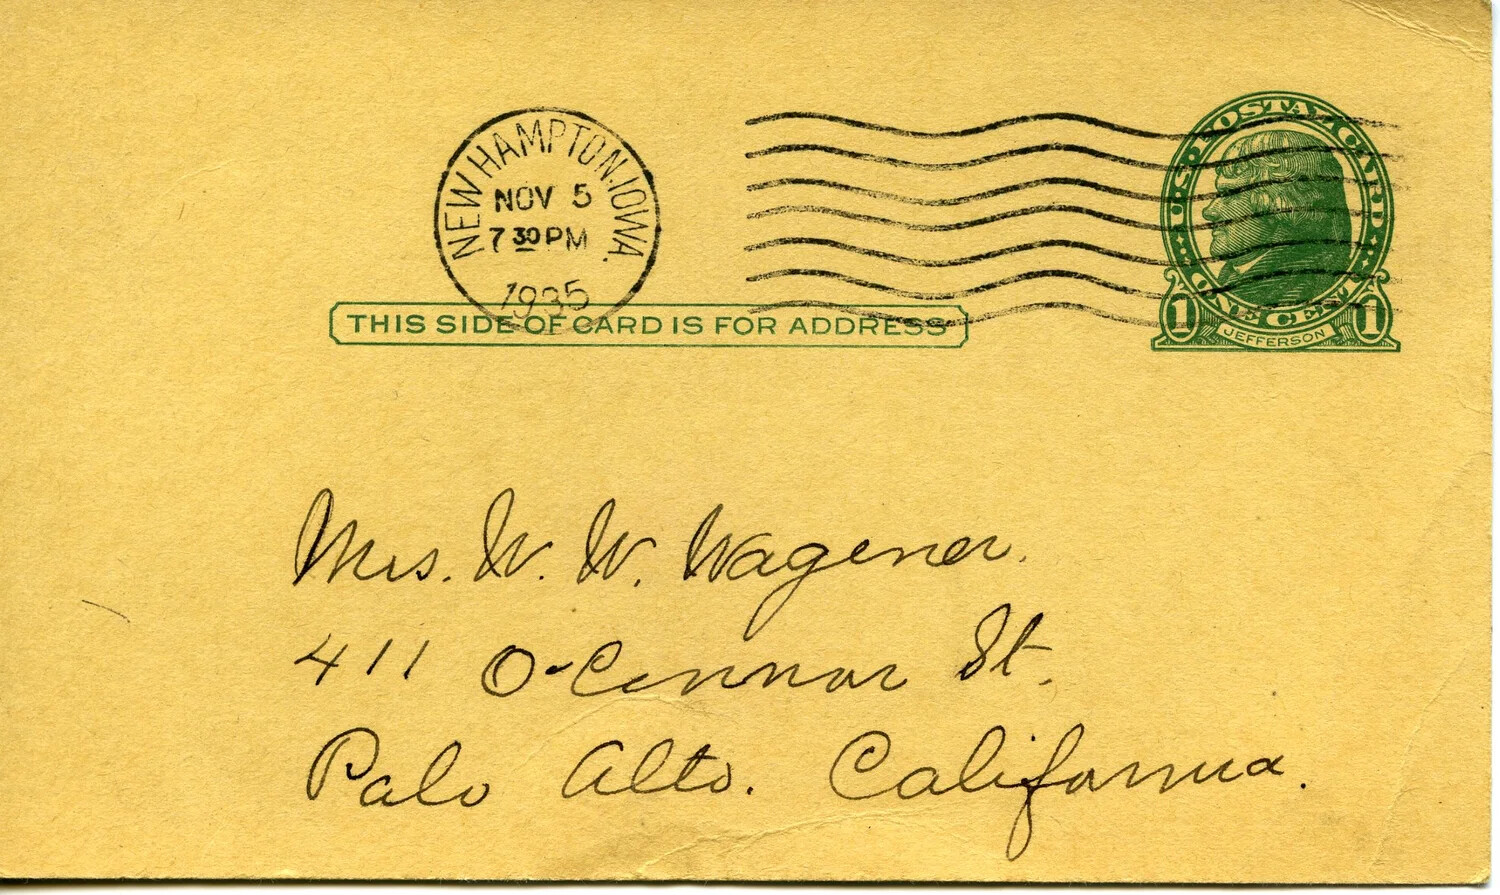 NEW HAMPTON. IOWA.
NOV 5
7 30 PM
1935
U·S·POSTAL CARD
ONE CENT
1 JEFFERSON 1
THIS SIDE OF CARD IS FOR ADDRESS
Mrs. W. W. Wagener.
411 O-Connor St.
Palo Alto. California.